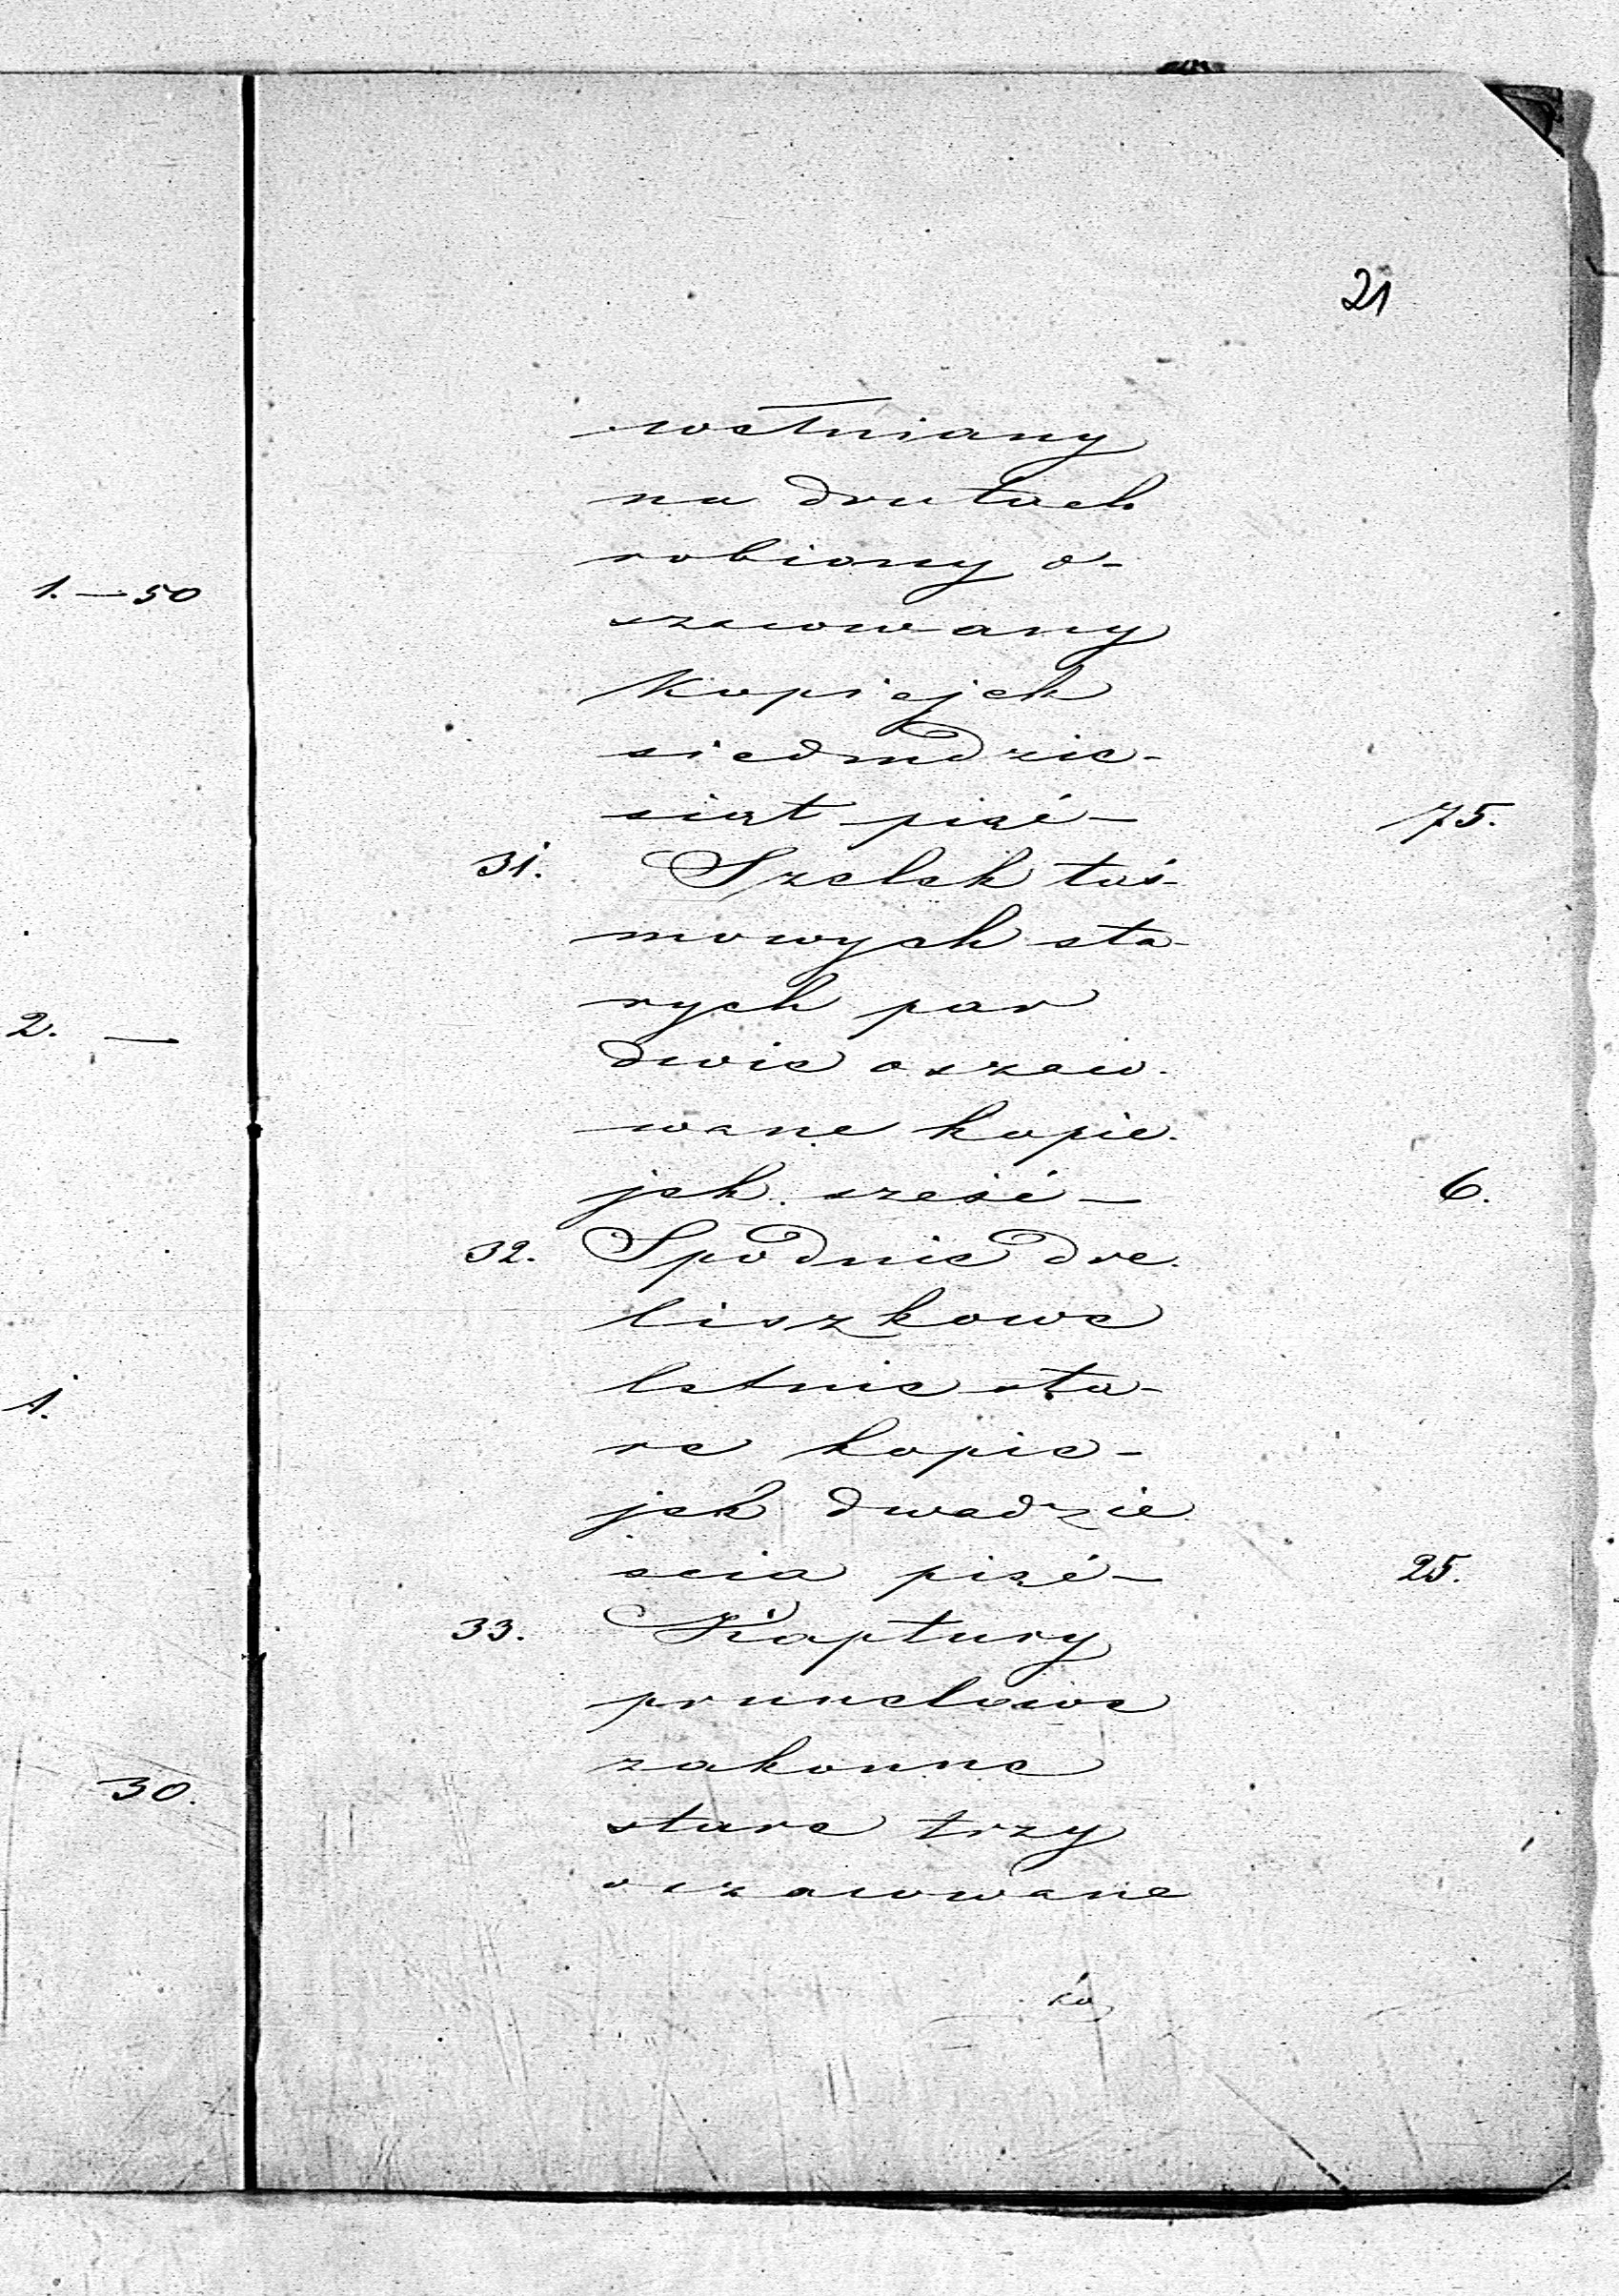 1. — 50
2. —
1.
30.
21
wełniany
na drutach
robiony o-
szacowany
Kopiejek
siedmdzie-
siąt pięć — 75.
31. Szelek taś-
mowych sta-
rych par
dwie oszaco-
wane kopie-
jek sześć — 6.
32. Spodnie dre-
liszkowe
letnie sta-
re kopie-
jek dwadzie
ścia pięć — 25.
33. Kaptury
prunelowe
zakonne
stare trzy
oszacowane
ko